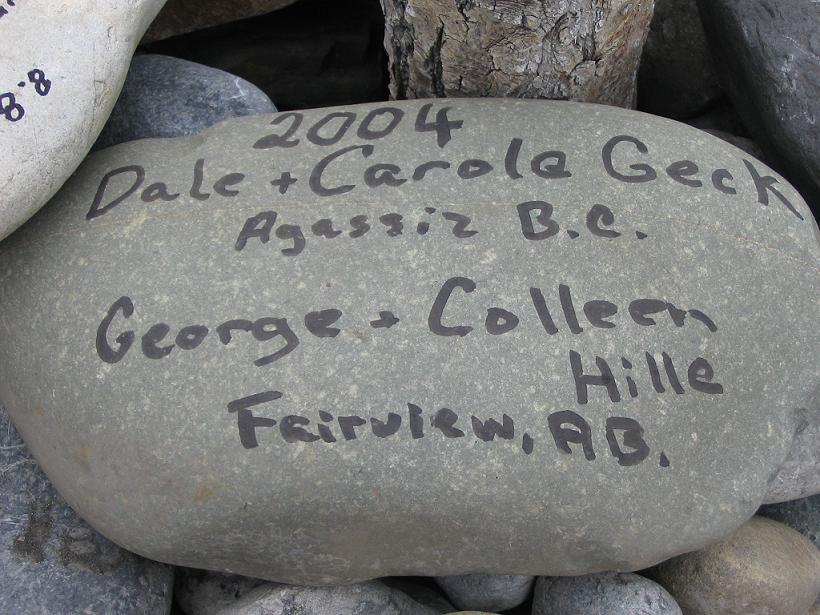 2004
Dale + Carole Geck
Agassiz B.C.
George + Colleen
Hille
Fairview, AB.
8.8